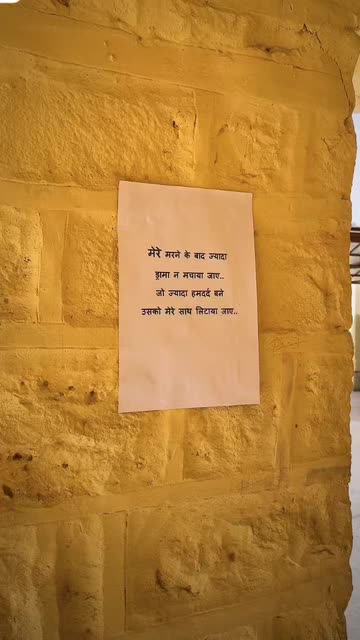 मेरे मरने के बाद ज्यादा
ड्रामा न मचाया जाए..
जो ज्यादा हमदर्द बने
उसको मेरे साथ लिटाया जाए..